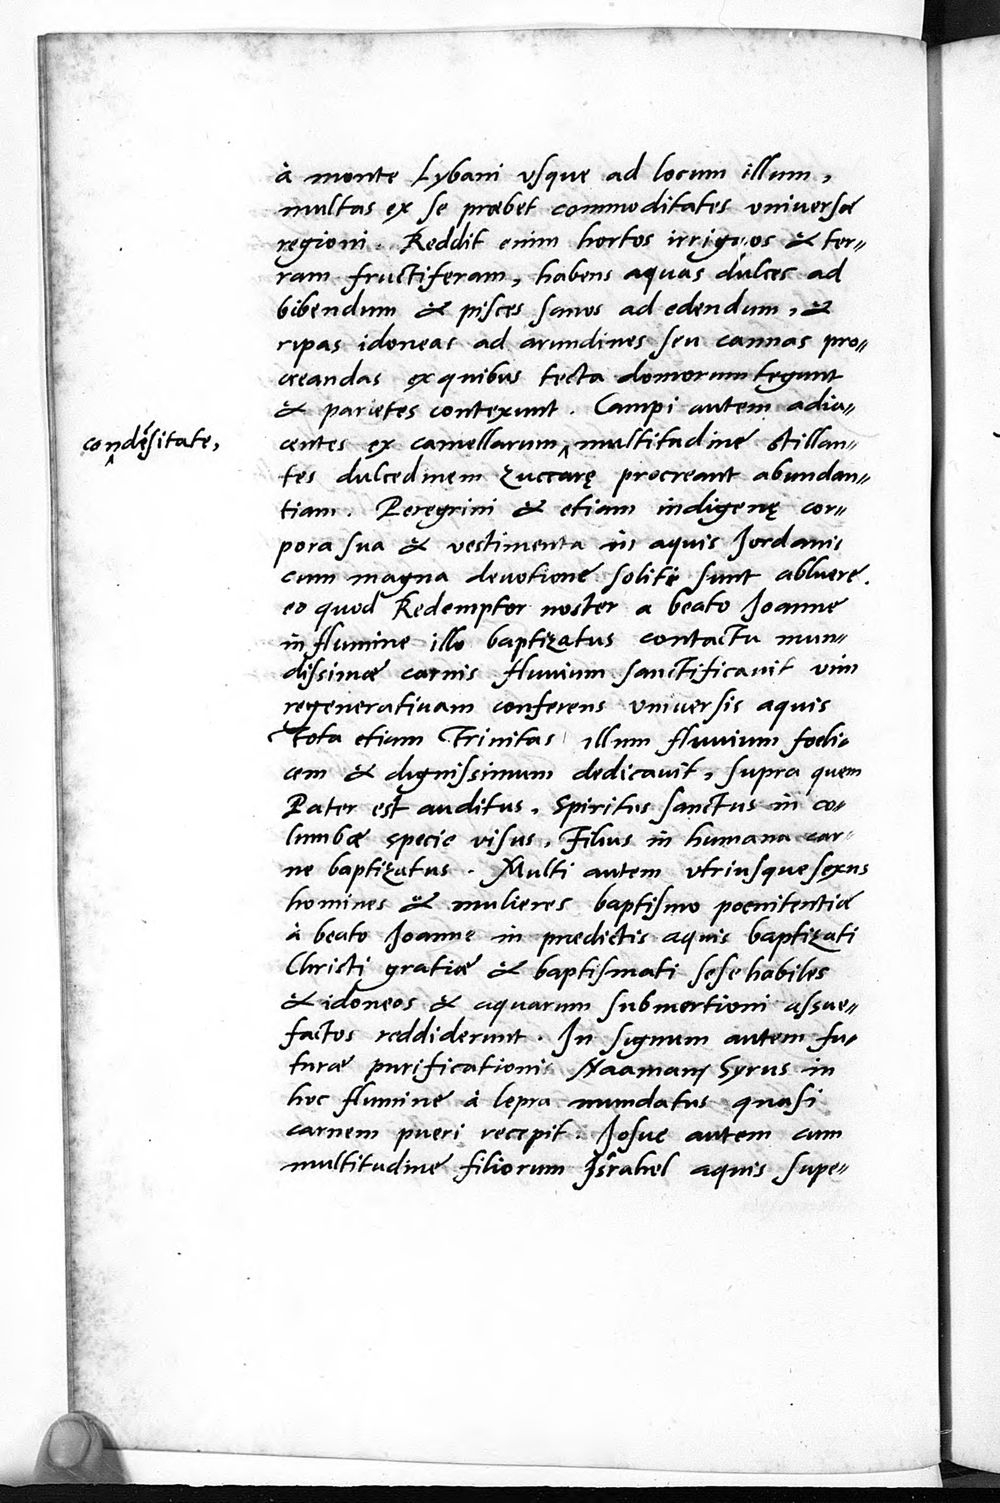 à monte Lybani vsque ad locum illum,
multas ex se præbet commoditates vniversæ
regioni. Reddit enim hortos irriguos & ter=
ram fructiferam, habens aquas dulces ad
bibendum & pisces sanos ad edendum, &
ripas idoneas ad arundines seu cannas pro=
creandas ex quibus tecta domorum tegunt
& parietes contexunt. Campi autem adia=
condēsitate,
centes ex camellarum multitudine stillan=
tes dulcedinem zuccarę procreant abundan=
tiam. Peregrini & etiam indigenę cor=
pora sua & vestimenta in aquis Jordanis
cum magna devotione soliti sunt abluere.
eo quod Redemptor noster a beato Joanne
in flumine illo baptizatus contactu mun=
dissimæ carnis fluvium sanctificavit vim
regenerativam conferens vniversis aquis
Tota etiam Trinitas illum fluvium foeli=
cem & dignissimum dedicavit, supra quem
Pater est auditus. Spiritus sanctus in co=
lumbæ specie visus. Filius in humana car=
ne baptizatus. Multi autem vtriusque sexus
homines & mulieres baptismo poenitentiæ
à beato Joanne in prædictis aquis baptizati
Christi gratiæ & baptismati sese habiles
& idoneos & aquarum submertioni assue=
factos reddiderunt. In signum autem fu=
turæ purificationis Naaman Syrus in
hoc flumine à lepra mundatus quasi
carnem pueri recepit. Josue autem cum
multitudine filiorum Israhel aquis supe=